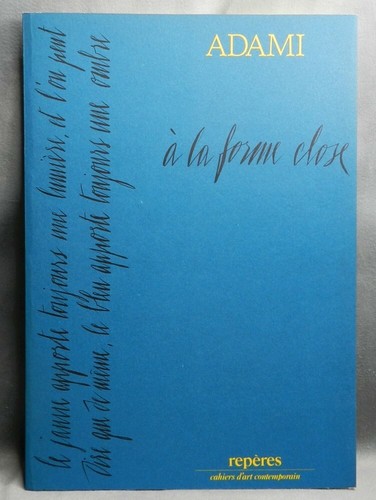 ADAMI
à la forme close
le jaune apporte toujours une lumière, et l'on peut
dire que de même, le bleu apporte toujours une ombre
repères
cahiers d'art contemporain